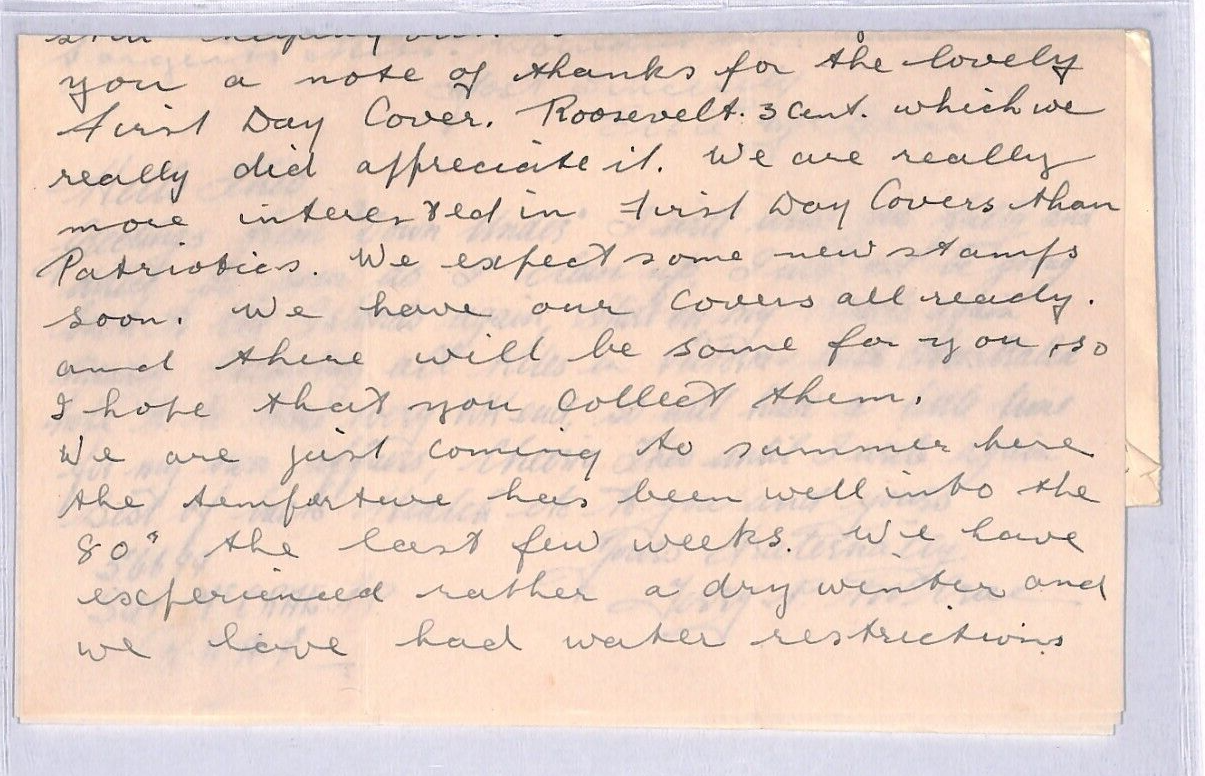 you a note of thanks for the lovely
First Day Cover. Roosevelt. 3 cent. which we
really did appreciate it. We are really
more interested in First Day Covers than
Patriotics. We expect some new stamps
soon. We have our covers all ready.
and there will be some for you, so
I hope that you collect them.
We are just coming to summer here
the temperture has been well into the
80° the last few weeks. We have
experienced rather a dry winter and
we have had water restrictions